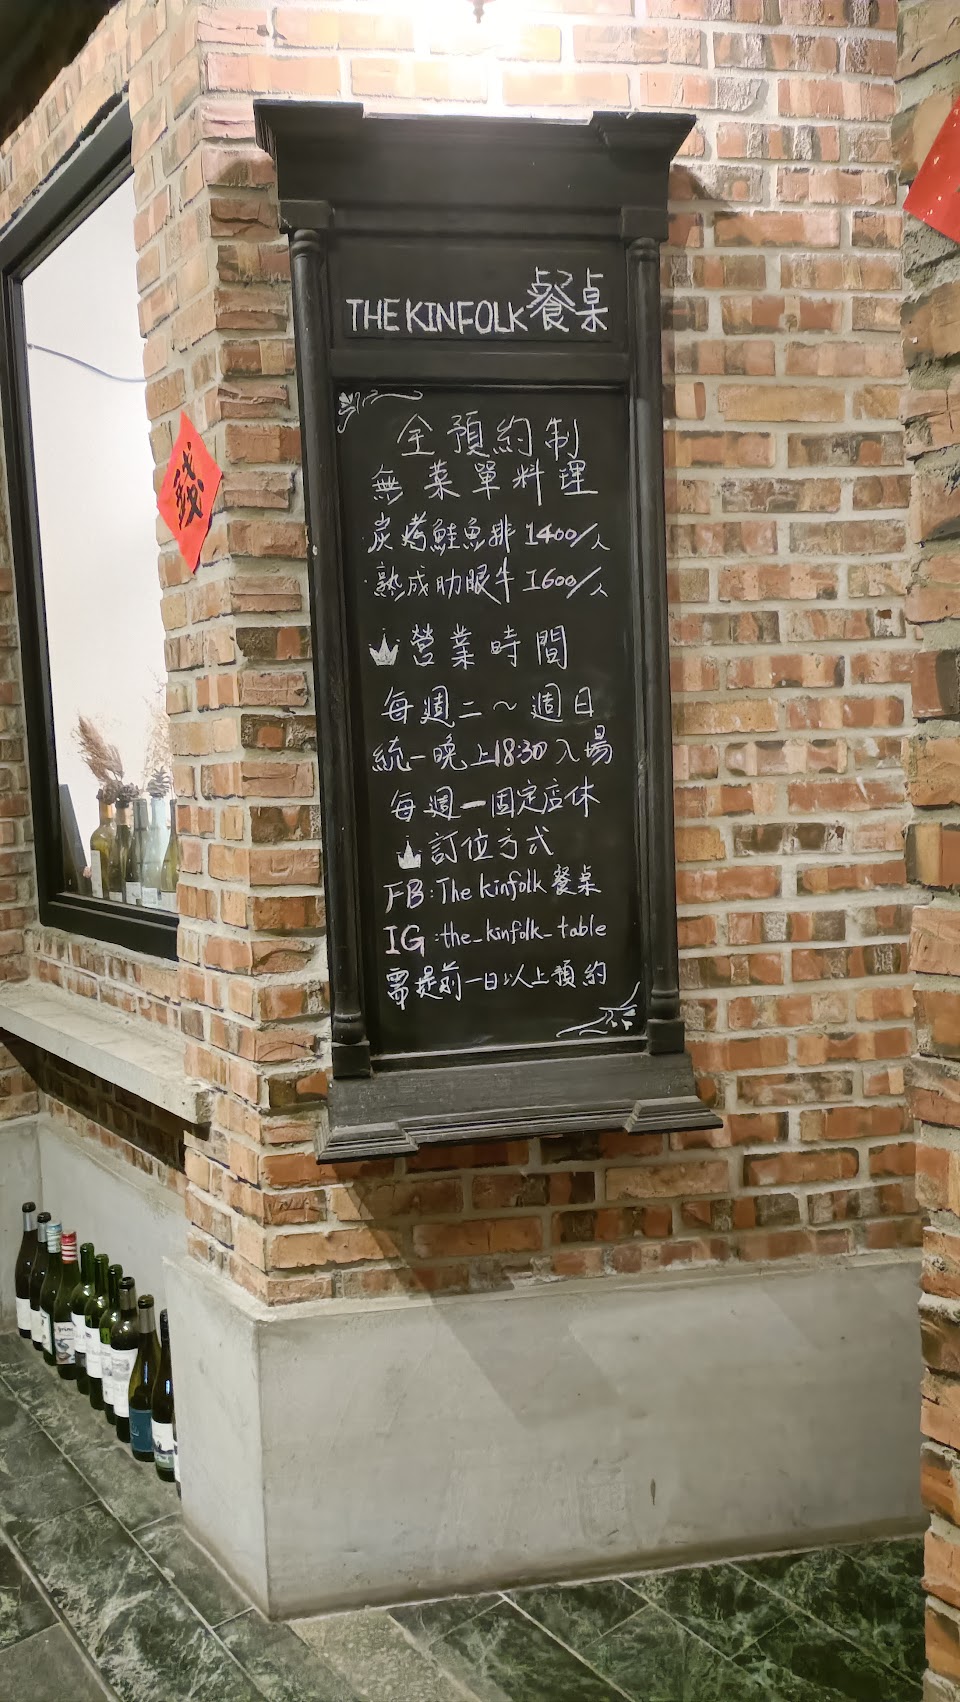 THE KINFOLK餐桌
全預約制
無菜單料理
·炭烤鮭魚排 1400/人
·熟成肋眼牛 1600/人
營業時間
每週二～週日
統一晚上18:30入場
每週一固定店休
訂位方式
FB:The kinfolk餐桌
IG:the_kinfolk_table
需提前一日以上預約
錢